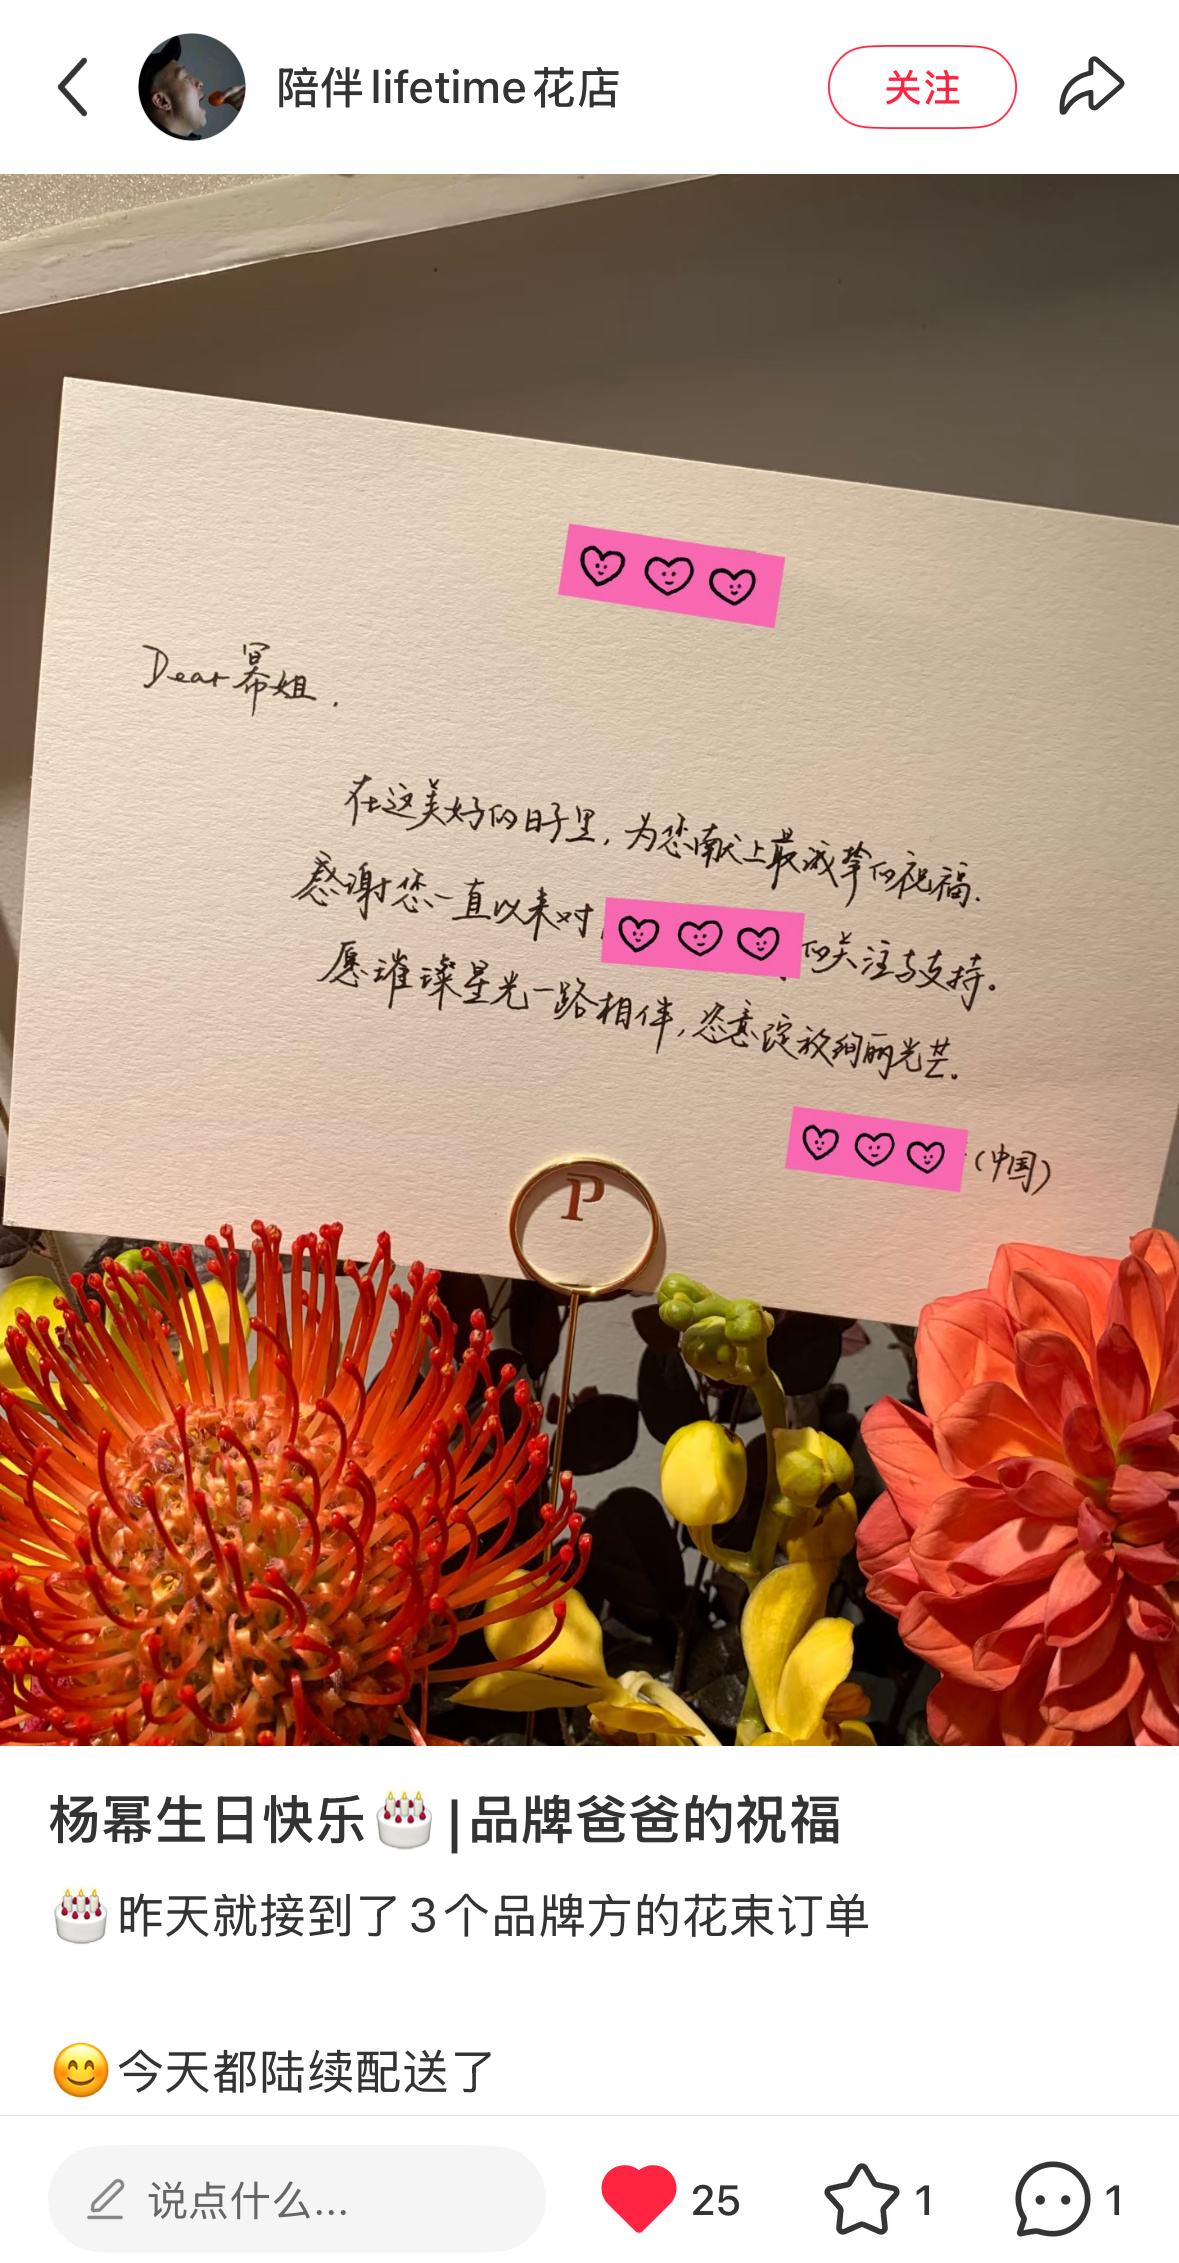 陪伴lifetime花店
关注
Dear 幂姐.
在这美好的日子里,为您献上最诚挚的祝福.
感谢您一直以来对
的关注与支持。
愿璀璨星光一路相伴,恣意绽放绚丽光芒。
(中国)
P
杨幂生日快乐🎂|品牌爸爸的祝福
🎂昨天就接到了3个品牌方的花束订单
😊今天都陆续配送了
说点什么...
25
1
1